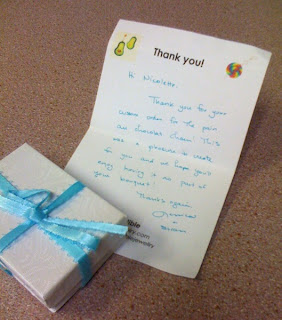 Thank you!
Hi Nicolette,
Thank you for your
custom order for the pain
au chocolat charm! This
was a pleasure to create
for you and we hope you'll
enjoy having it as part of
your
Thanks again